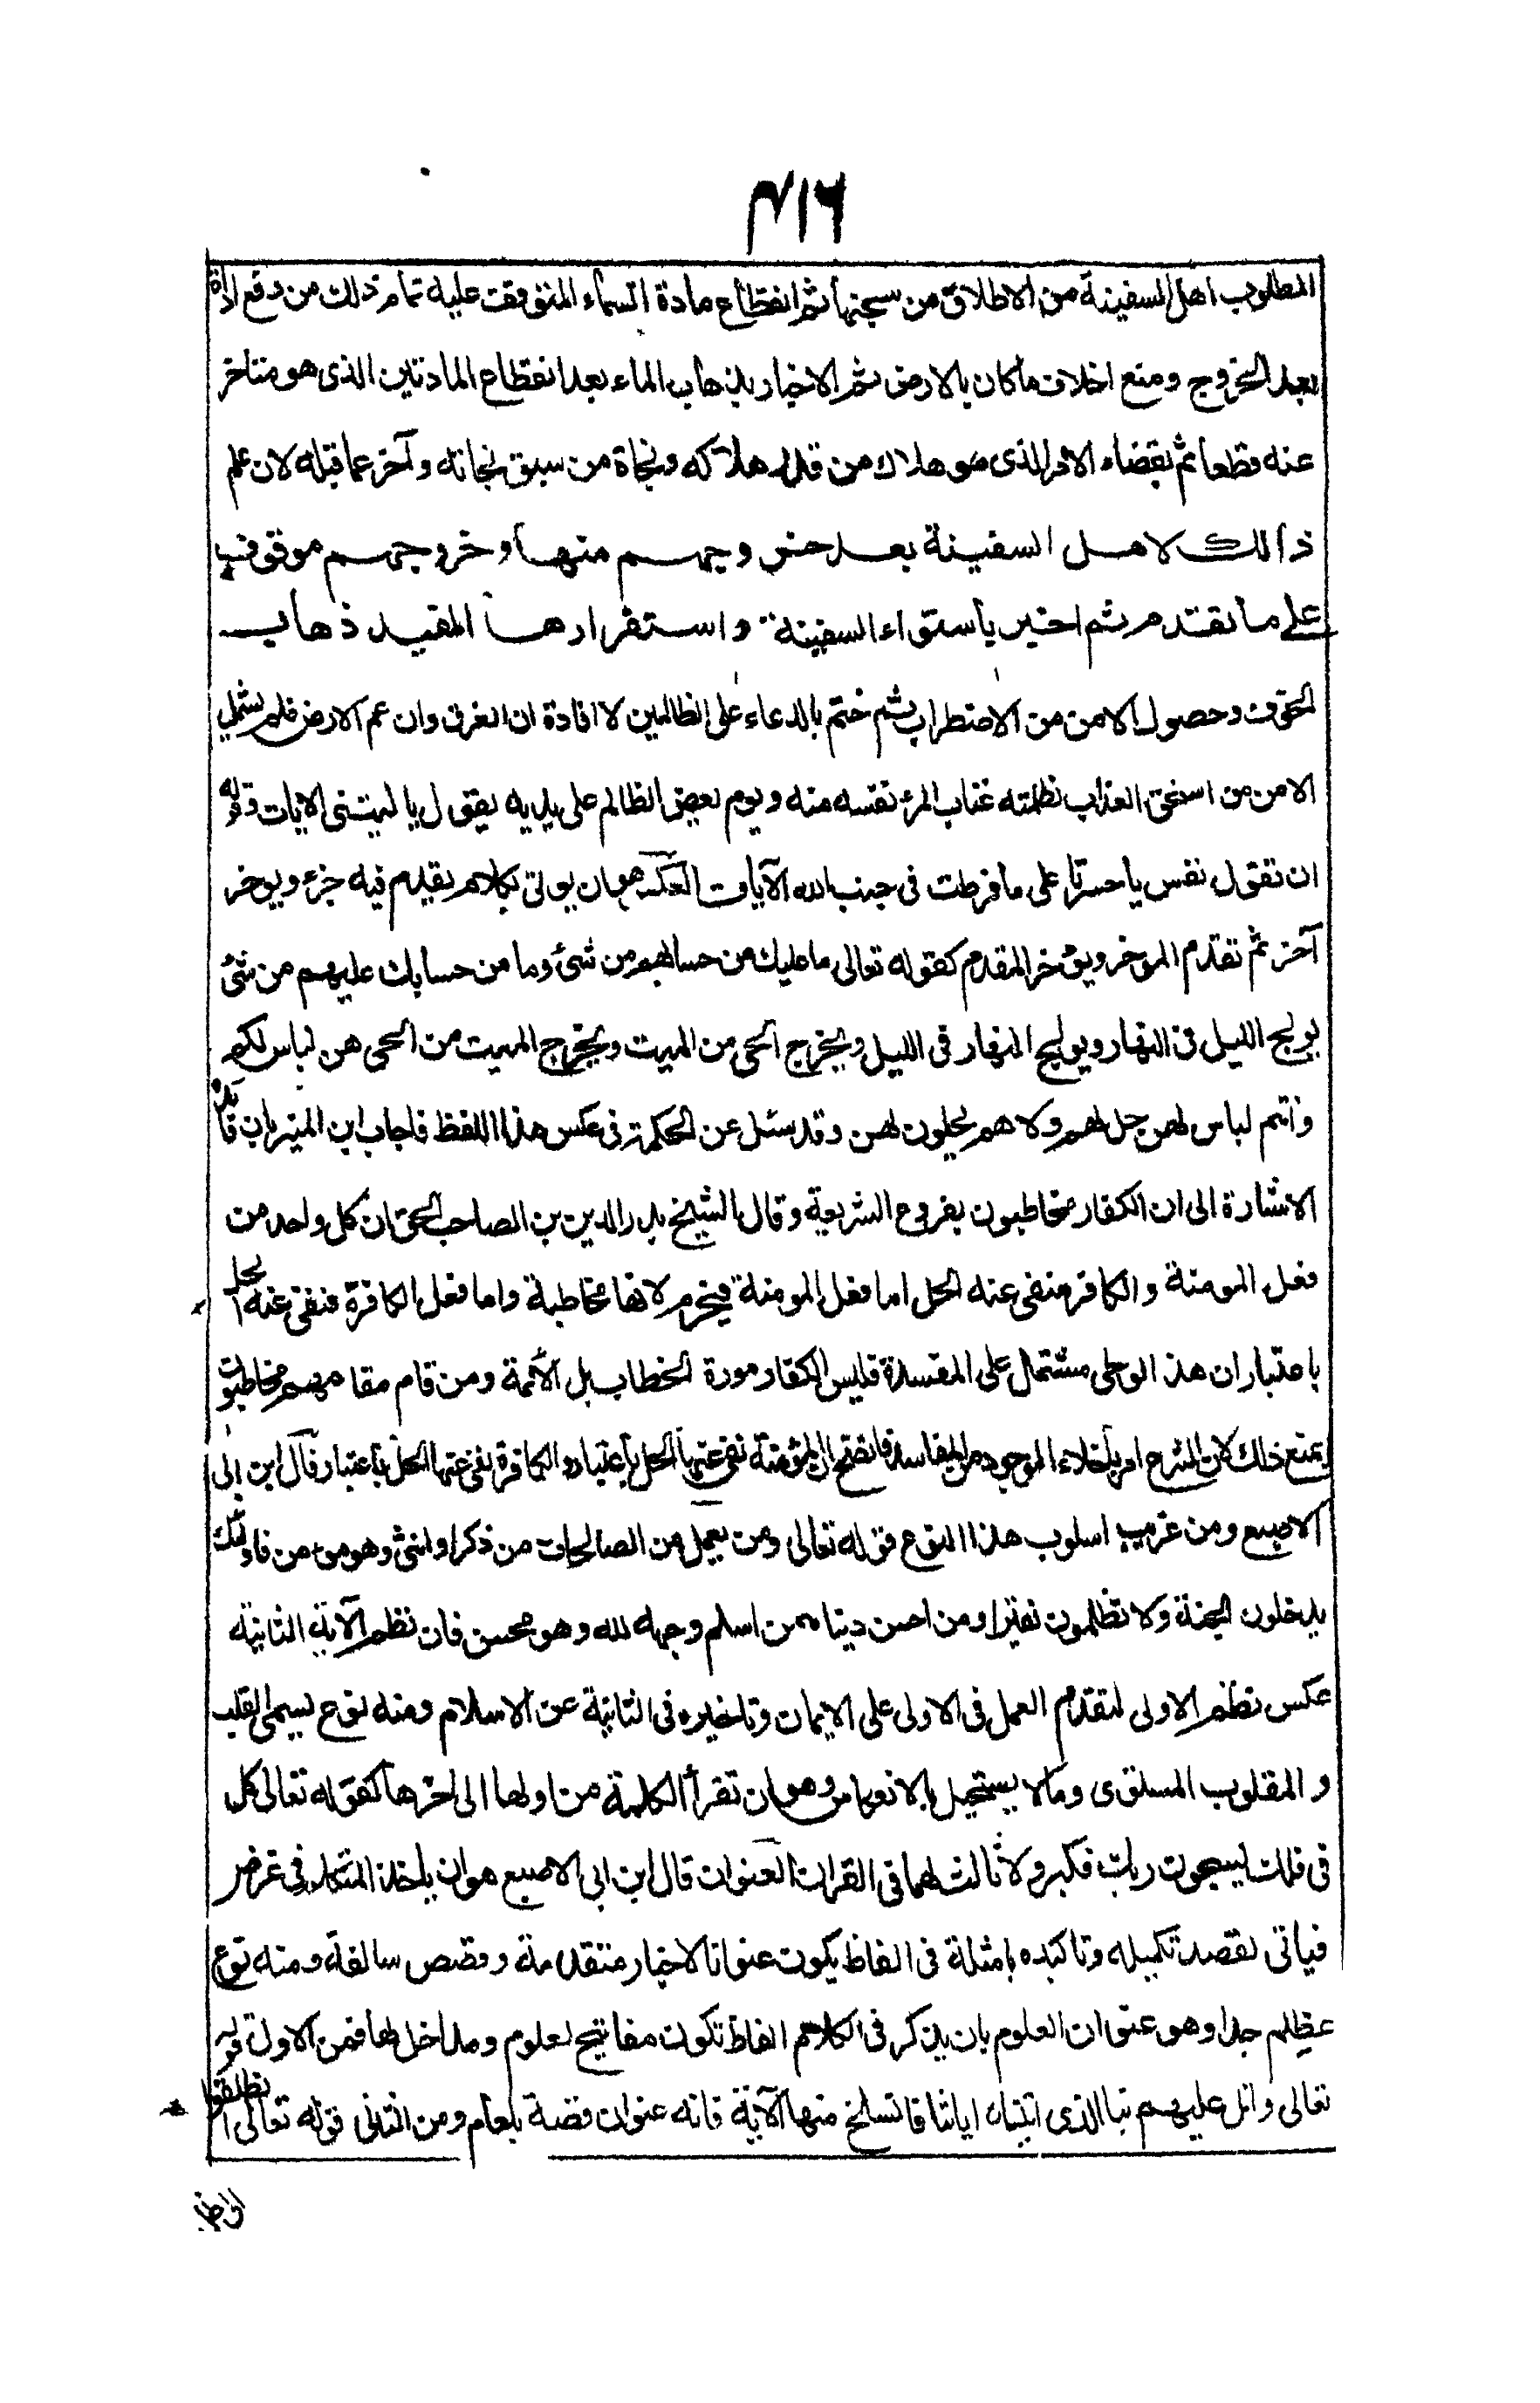 ۷۱۶
المطلوب اهل السفينة من الاطلاق من سجنها ثم انقطاع مادة السماء المتوقف عليه تمام ذلك من دفع اذاة
بعد الخروج ومنع اخلاف ما كان بالارض ثم الاخبار بذهاب الماء بعد انقطاع المادتين الذى هو متاخر
عنه قطعا ثم بقضاء الامر الذى هو هلاك من قدر هلاكه ونجاة من سبق نجاته وآخر عما قبله لان علم
ذالك لاهل السفينة بعد خروجهم منها وخروجهم موقوف
على ما تقدم ثم اخبر باستواء السفينة واستقرارها المفيد ذهاب
الخوف وحصول الامن من الاضطراب ثم ختم بالدعاء على الظالمين لافادة ان الغرق وان عم الارض فلم يشمل
الا من من استحق العذاب لظلمته عتاب المرء نفسه منه ويوم يعض الظالم على يديه يقول يا ليتنى الايات وقوله
ان تقول نفس يا حسرتا على ما فرطت فى جنب الله الآيات العكس هو ان يوتى بكلام يقدم فيه جزء ويوخر
آخر ثم تقدم الموخر ويؤخر المقدم كقوله تعالى ما عليك من حسابهم من شئ وما من حسابك عليهم من شئ
يولج الليل فى النهار ويولج النهار فى الليل ويخرج الحى من الميت ويخرج الميت من الحى هن لباس لكم
وانتم لباس لهن حل لهم ولا هم يحلون لهن وقد سئل عن الحكمة فى عكس هذا اللفظ فاجاب ابن المنير بان فائدته
الاشارة الى ان الكفار مخاطبون بفروع الشريعة وقال الشيخ بدر الدين بن الصاحب الحق ان كل واحد من
فعل المومنة والكافر منفى عنه الحل اما فعل المومنة فيحرم لانها مخاطبة واما فعل الكافرة فنفى عنه الحل
باعتبار ان هذا الوطى مشتمل على المفسدة فليس الكفار مورد الخطاب بل الأئمة ومن قام مقامهم مخاطبون
بمنع ذلك لان الشرع امر باخلاء الوجود من المفاسد فاتضح ان المؤمنة نفى عنها الحل باعتبار والكافرة نفى عنها الحل باعتبار قال ابن ابى
الاصبع ومن غريب اسلوب هذا النوع قوله تعالى ومن يعمل من الصالحات من ذكر او انثى وهو مومن فاولئك
يدخلون الجنة ولا يظلمون نقيرا ومن احسن دينا ممن اسلم وجهه لله وهو محسن فان نظم الآية الثانية
عكس نظم الاولى لتقدم العمل فى الاولى على الايمان وتاخيره فى الثانية عن الاسلام ومنه نوع يسمى القلب
والمقلوب المستوى وما لا يستحيل بالانعكاس وهو ان تقرأ الكلمة من اولها الى اخرها كقوله تعالى كل
فى فلك يسبحون ربك فكبر ولا ثالث لهما فى القران العنوان قال ابن ابى الاصبع هو ان ياخذ المتكلم فى غرض
فياتى لقصد تكميله وتاكيده بامثلة فى الفاظ يكون عنوانا لاخبار متقدمة وقصص سالفة ومنه نوع
عظيم جدا وهو عنوان العلوم بان يذكر فى الكلام الفاظ تكون مفاتيح لعلوم ومداخل لها فمن الاول قوله
تعالى واتل عليهم نبا الذى اتيناه اياتنا فانسلخ منها الآية فانه عنوان قصة بلعام ومن الثانى قوله تعالى انطلقوا